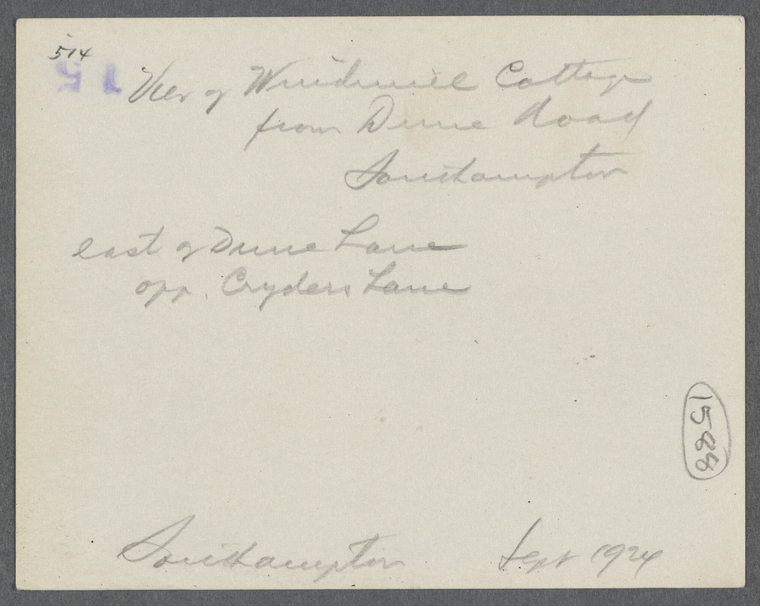 514
15
View of Windmill Cottage
from Dune Road
Southampton
east of Dune Lane
opp. Cryders Lane
1588
Southampton Sept 1924